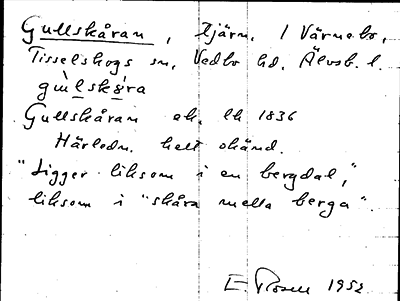 Gullskåran, tjärn. / Värmebo,
Tisselskogs sn, Vedbo hd, Älvsb. l.
gùlskå̀ra
Gullskåran ek. lh 1836
Härledn. helt okänd.
"Ligger liksom i en bergdal",
liksom i "skåra mella berga".
E. Rosell 1952